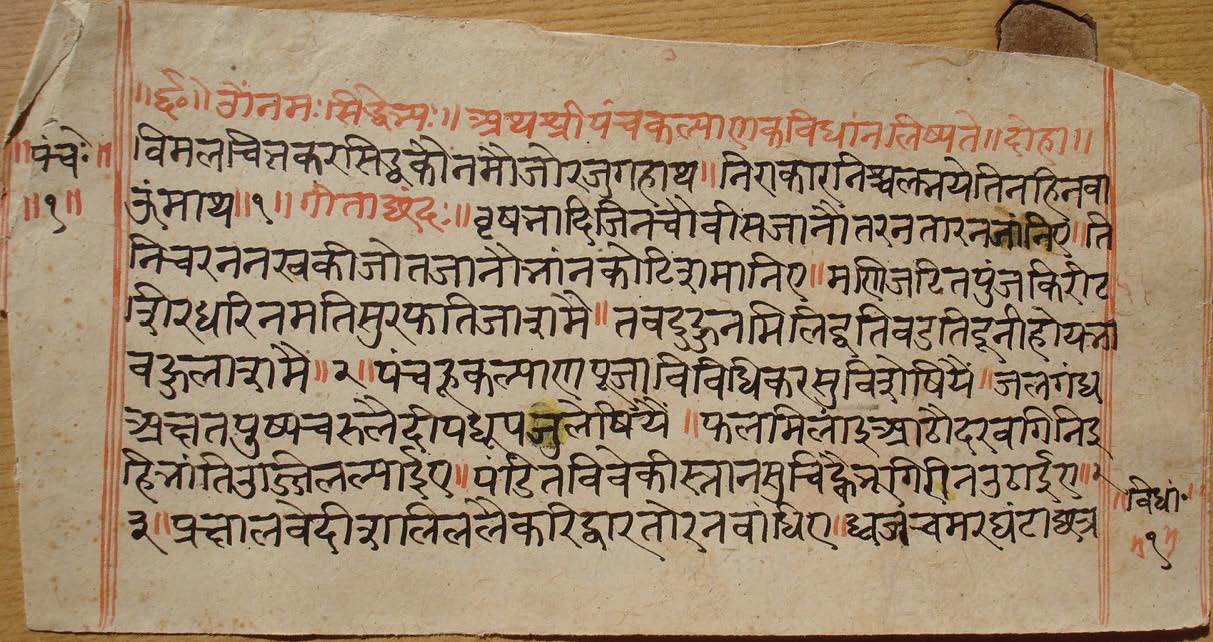 ॥ र्द्द० ॥ ओं नमः सिद्धेभ्यः ॥ अथ श्री पंचकल्याणक विधांन लिष्यते ॥ दोहा ॥
पंचे०
॥ १ ॥
विमल चित्त कर सिद्ध कौ नमौ जोर जुग हाथ ॥ निराकार निश्चल नये तिनहि नवा
ऊं माथ ॥ १ ॥ गीता छंदः ॥ वृषभादि जिन चौवीस जानौ तरन तारन जांनिए ॥ ति
नि चरन नख की जोत जानौ भांन कोटि शमानिए ॥ मणि जटित पुंज किरीट
शीर धरि नमति सुरपति जाशमै ॥ तव दुहुन मिलि द्वति वढति दूनी होय भा
व हुलाशमै ॥ २ ॥ पंच कल्याण पूजा विविधि कर सु विशेषियै ॥ जल गंध
अक्षत पुष्प चरु लै दीप धूप जु लेषियै ॥ फल मिलांइ आठौ दरव
हि भांति उज्जिल ल्याईए ॥ पंडित विवेकी स्नान सुचि ॥
३ ॥ प्रक्षाल वेदी शालि ल लै करि द्वार तोरन वांधिए ॥ ध्वज चंमर घंटा छत्र
विधां०
॥ १ ॥